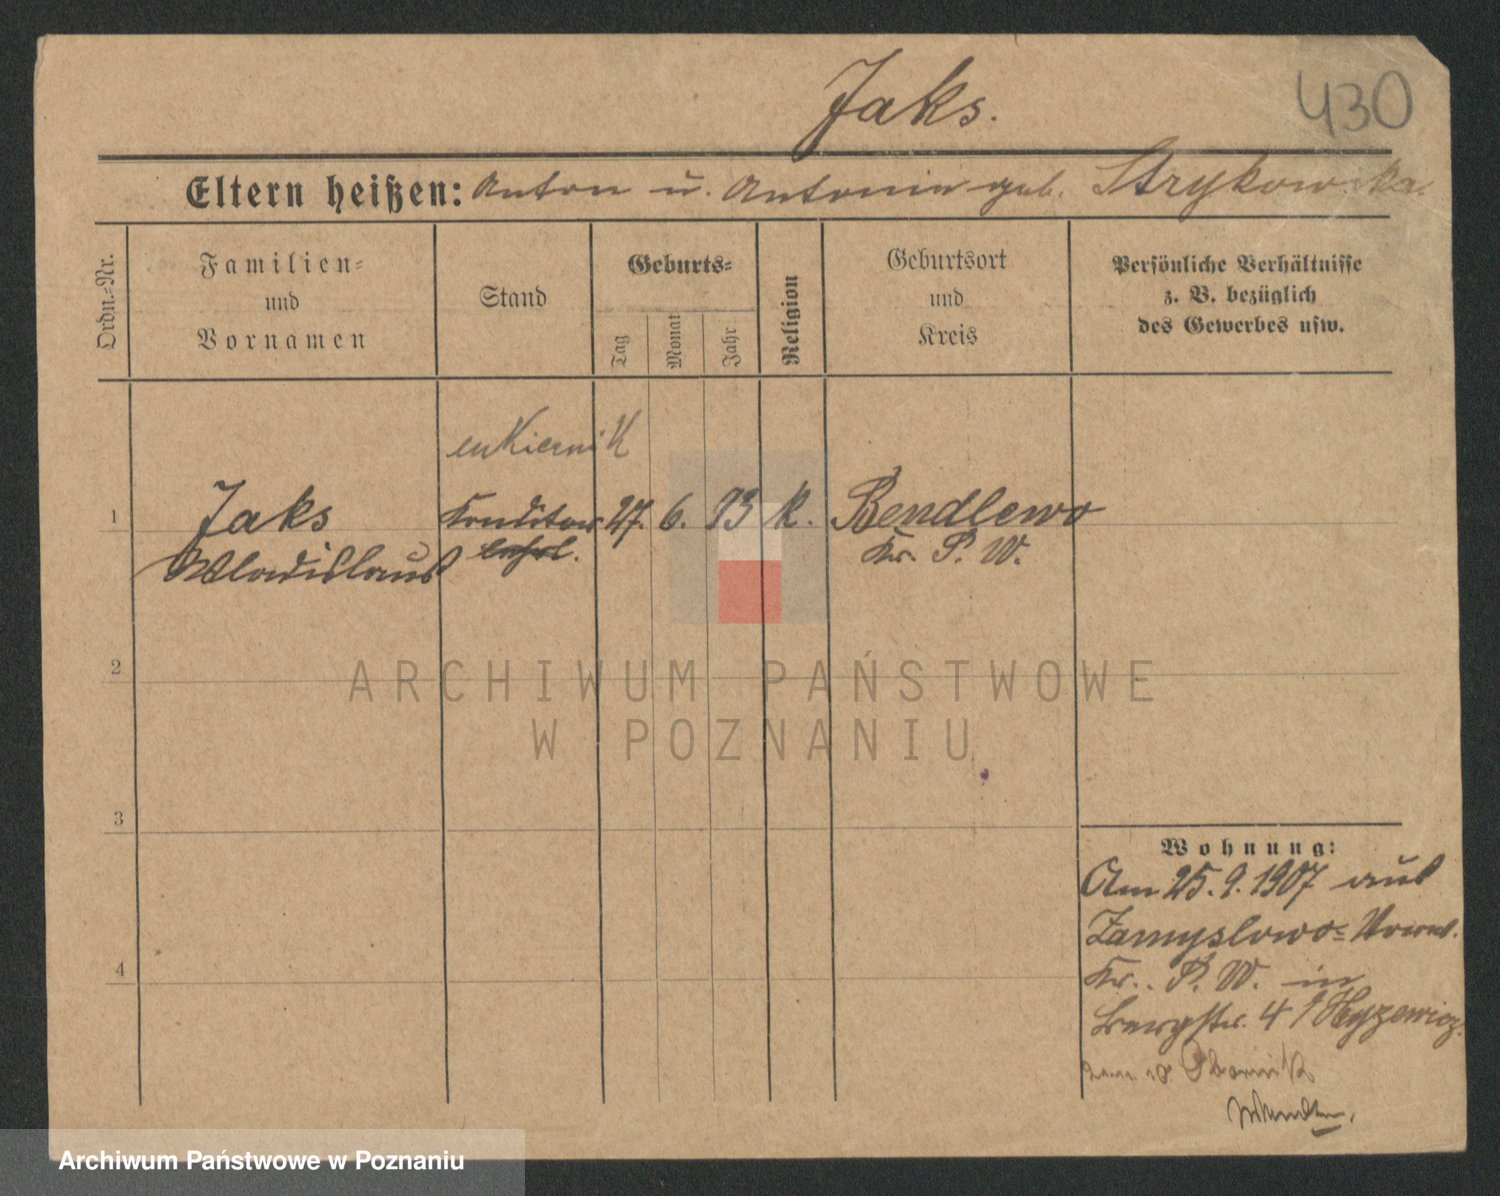 Jaks.
430
Eltern heißen: Anton u. Antonin geb. Strykowska.
Ordn.-Nr.
Familien-
und
Vornamen
Stand
Geburts-
Tag
Monat
Jahr
Religion
Geburtsort
und
Kreis
Persönliche Verhältnisse
z. B. bezüglich
des Gewerbes usw.
cukiernik
1
Jaks
Wladislaus
Konditor
lehrl.
27. 6. 93
k.
Bendlewo
Kr. P. W.
2
3
4
Wohnung:
Am 25. 9. 1907 aus
Zamyslowo-
Kr. P. W. in
Bergstr. 4
Obornik
ARCHIWUM PAŃSTWOWE
W POZNANIU
Archiwum Państwowe w Poznaniu